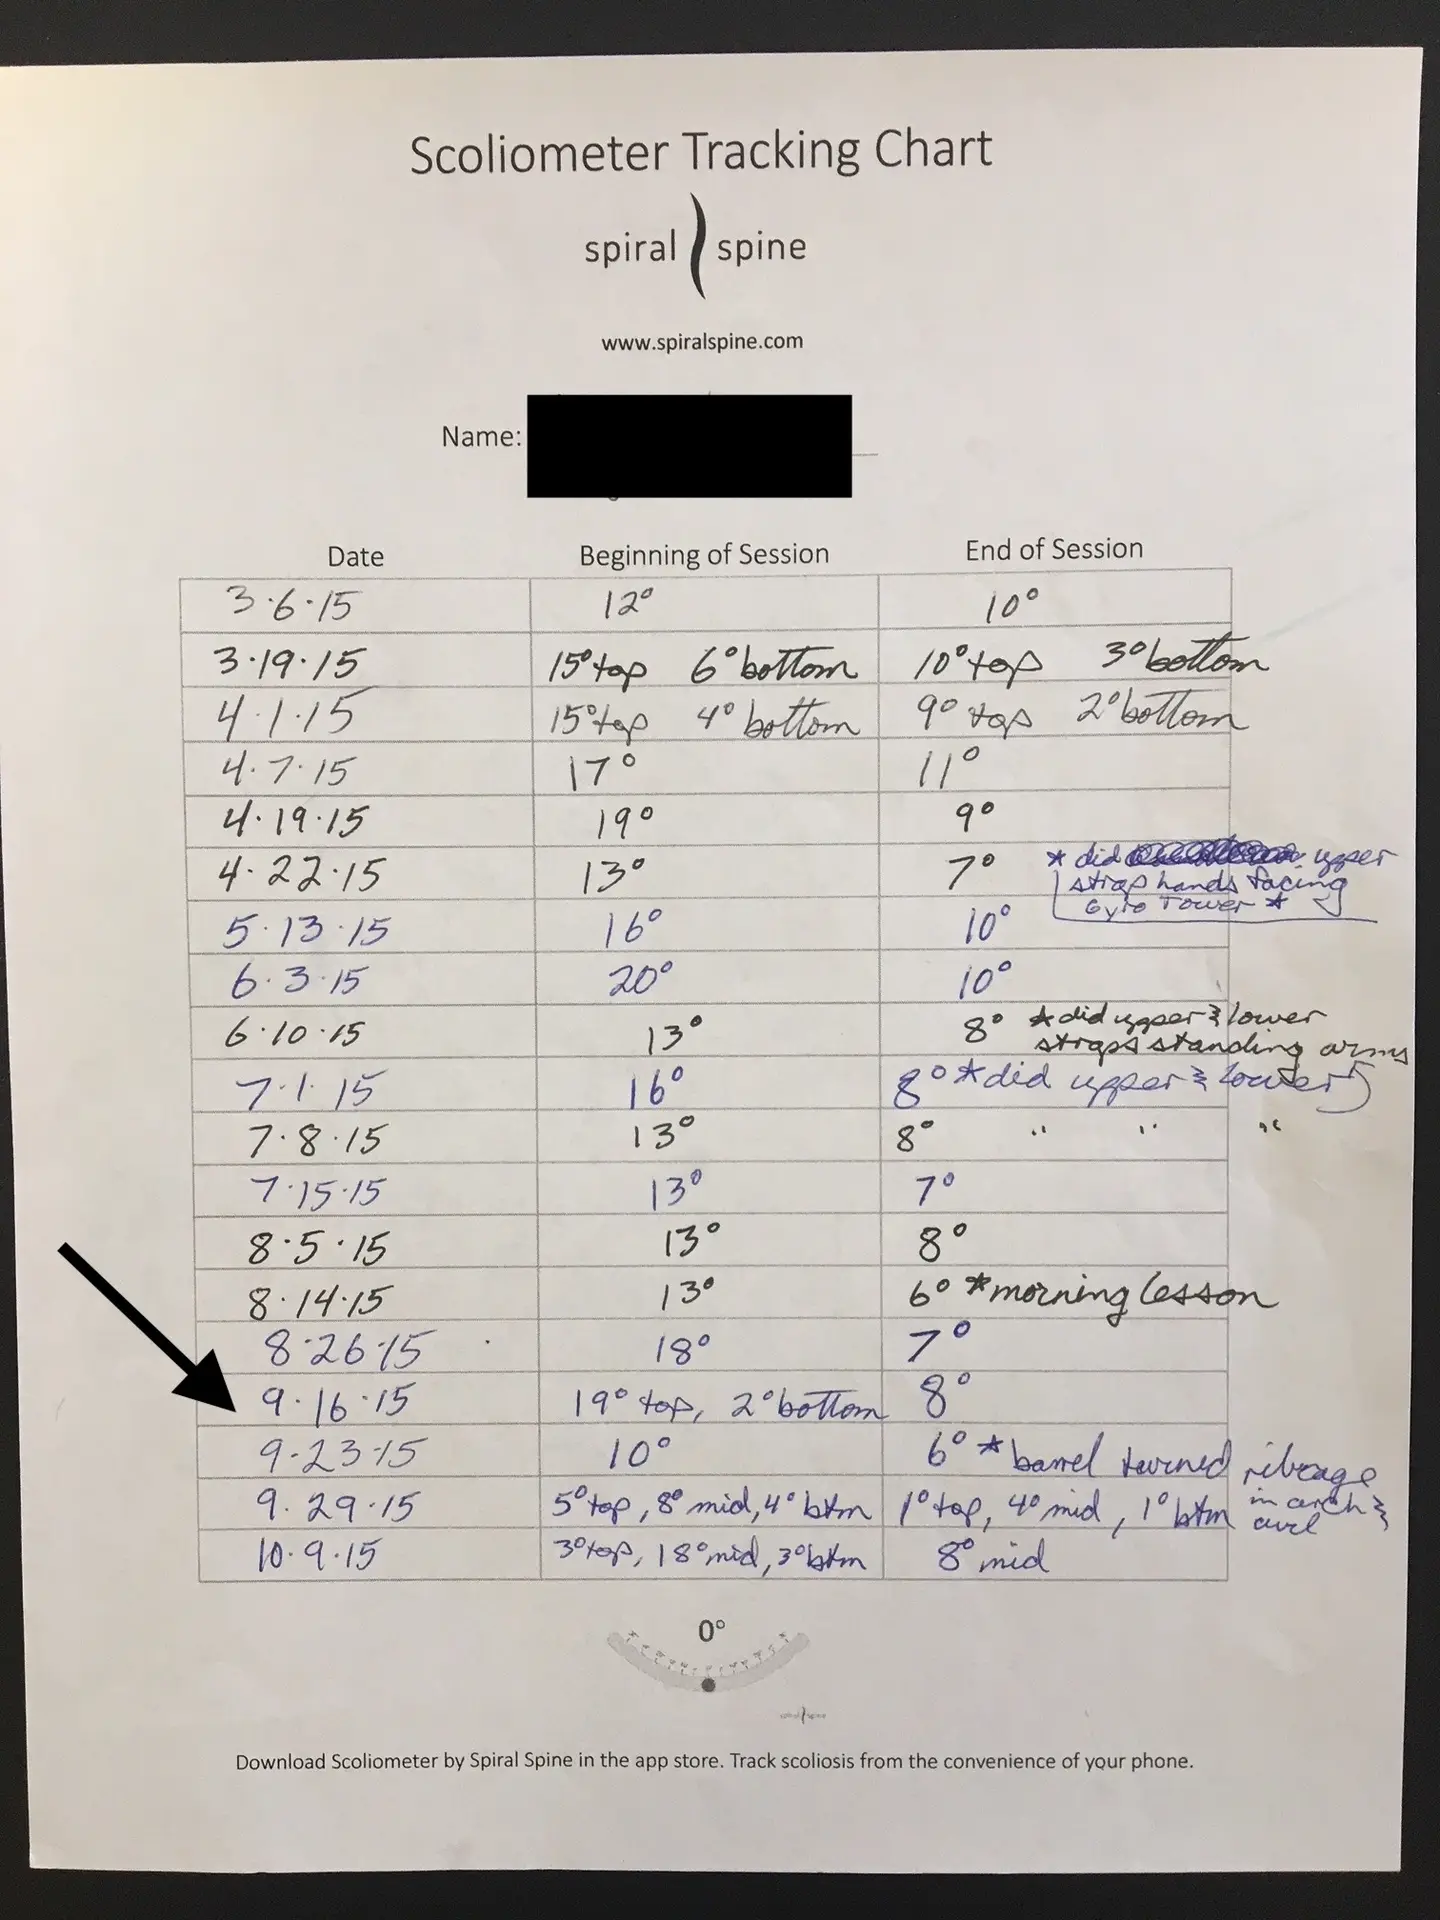 Scoliometer Tracking Chart
spiral spine
www.spiralspine.com
Name:
Date Beginning of Session End of Session
3·6·15 12° 10°
3·19·15 15° top 6° bottom 10° top 3° bottom
4·1·15 15° top 4° bottom 9° top 2° bottom
4·7·15 17° 11°
4·19·15 19° 9°
4·22·15 13° 7° * did upper
strap hands facing
Gyro Tower *
5·13·15 16° 10°
6·3·15 20° 10°
6·10·15 13° 8° * did upper & lower
straps standing arms
7·1·15 16° 8° * did upper & lower
7·8·15 13° 8° " " "
7·15·15 13° 7°
8·5·15 13° 8°
8·14·15 13° 6° * morning lesson
8·26·15 18° 7°
9·16·15 19° top, 2° bottom 8°
9·23·15 10° 6° * barrel turned ribcage
in arch &
curl
9·29·15 5° top, 8° mid, 4° btm 1° top, 4° mid, 1° btm
10·9·15 3° top, 18° mid, 3° btm 8° mid
0°
spiral spine
Download Scoliometer by Spiral Spine in the app store. Track scoliosis from the convenience of your phone.